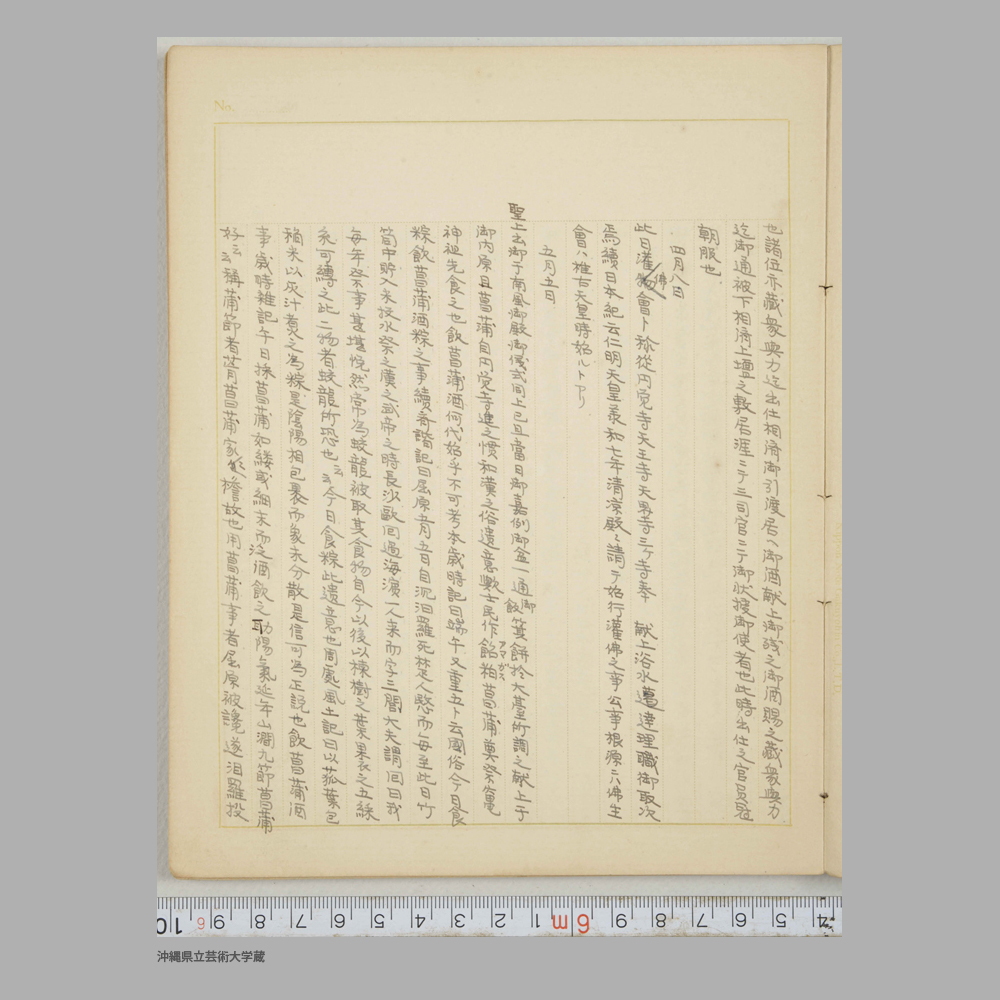 也諸位亦蔵衆與力迄出仕相済御引渡居へ御酒献上御残之御酒賜之蔵衆與力
迄御通被下相済上壇之敷居涯ニテ三司官ニテ御状援御使者也此時出仕之官員冠
朝服也
四月八日
此日灌佛會ト称從円覚寺天王寺天界寺三ヶ寺奉 献上浴水當達理職御取次
焉續日本紀云仁明天皇承和七年清凉殿ニ請テ始行灌佛之事公事根源ニハ佛生
會ハ推古天皇時始ルトアリ
五月五日
聖上出御于南風御殿御儀式同上已且當日御嘉例御盆一通御飯筴餅於大臺所調之献上于
御内原且菖蒲自円覚寺進之慣和漢之俗遺意歟士民作飴粕アマガス菖蒲奠祭竈
神祖先食之也飲菖蒲酒何代始乎不可考本歳時記曰端午又重五ト云國俗今日食
粽飲菖蒲酒粽之事續斉諧記曰屈原五月五日自沉汨羅死楚人愍而毎至此日竹
筒中貯入米投水祭之漢之武帝之時長沙歐回過海濱一人来而字三閭大夫謂回曰我
毎年祭事甚堪悦然常為蛟龍被取其食物自今以後以楝樹之葉裹之五絲
糸可縛之此二物者蛟龍所恐也云云今日食粽此遺意也周處風土記曰以菰葉包
稲米以灰汁煮之為粽是陰陽相包裹而象未分散是信可為正説也飲菖蒲酒
事歳時雑記午日採菖蒲如縷或細末而泛酒飲之助陽氣延年山澗九節菖蒲
好云云稱蒲節者葺菖蒲家々檐故也用菖蒲事者屈原被讒遂汨羅投
No.
沖縄県立芸術大学蔵